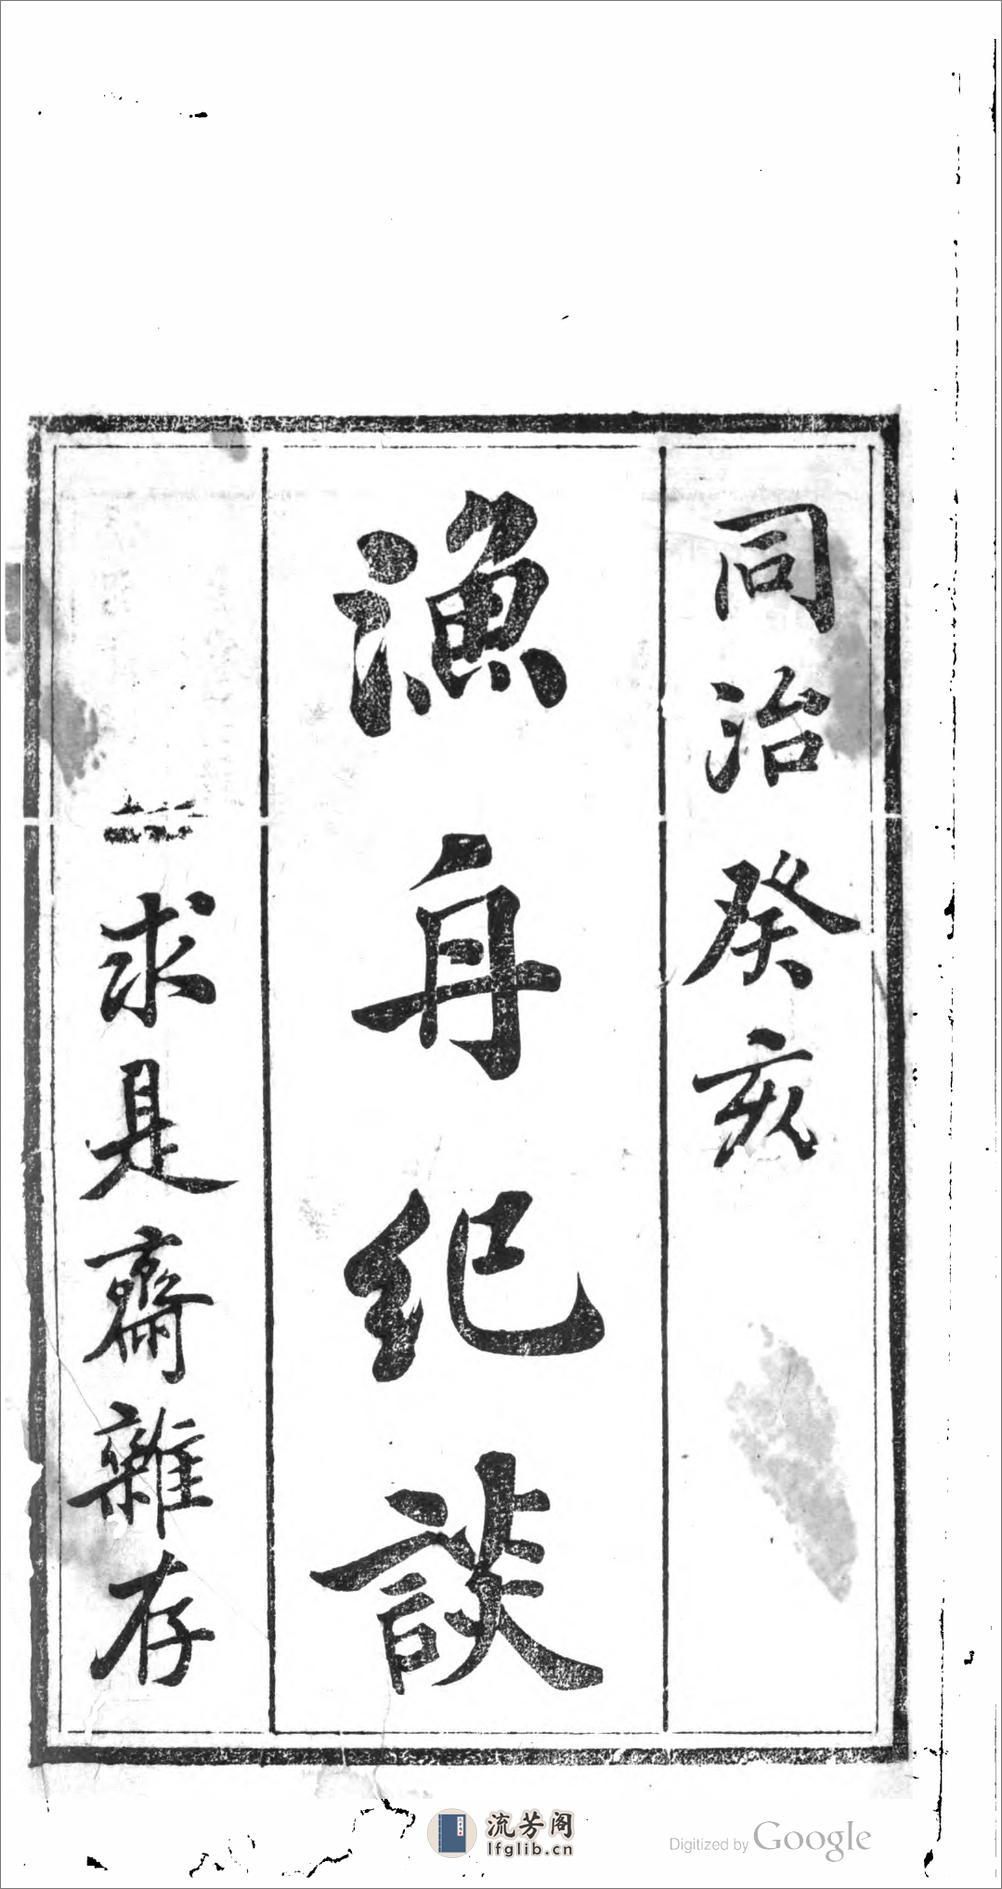 同治癸亥
漁舟紀談
求是齋雜存
流芳阁
lfglib.cn
Digitized by Google